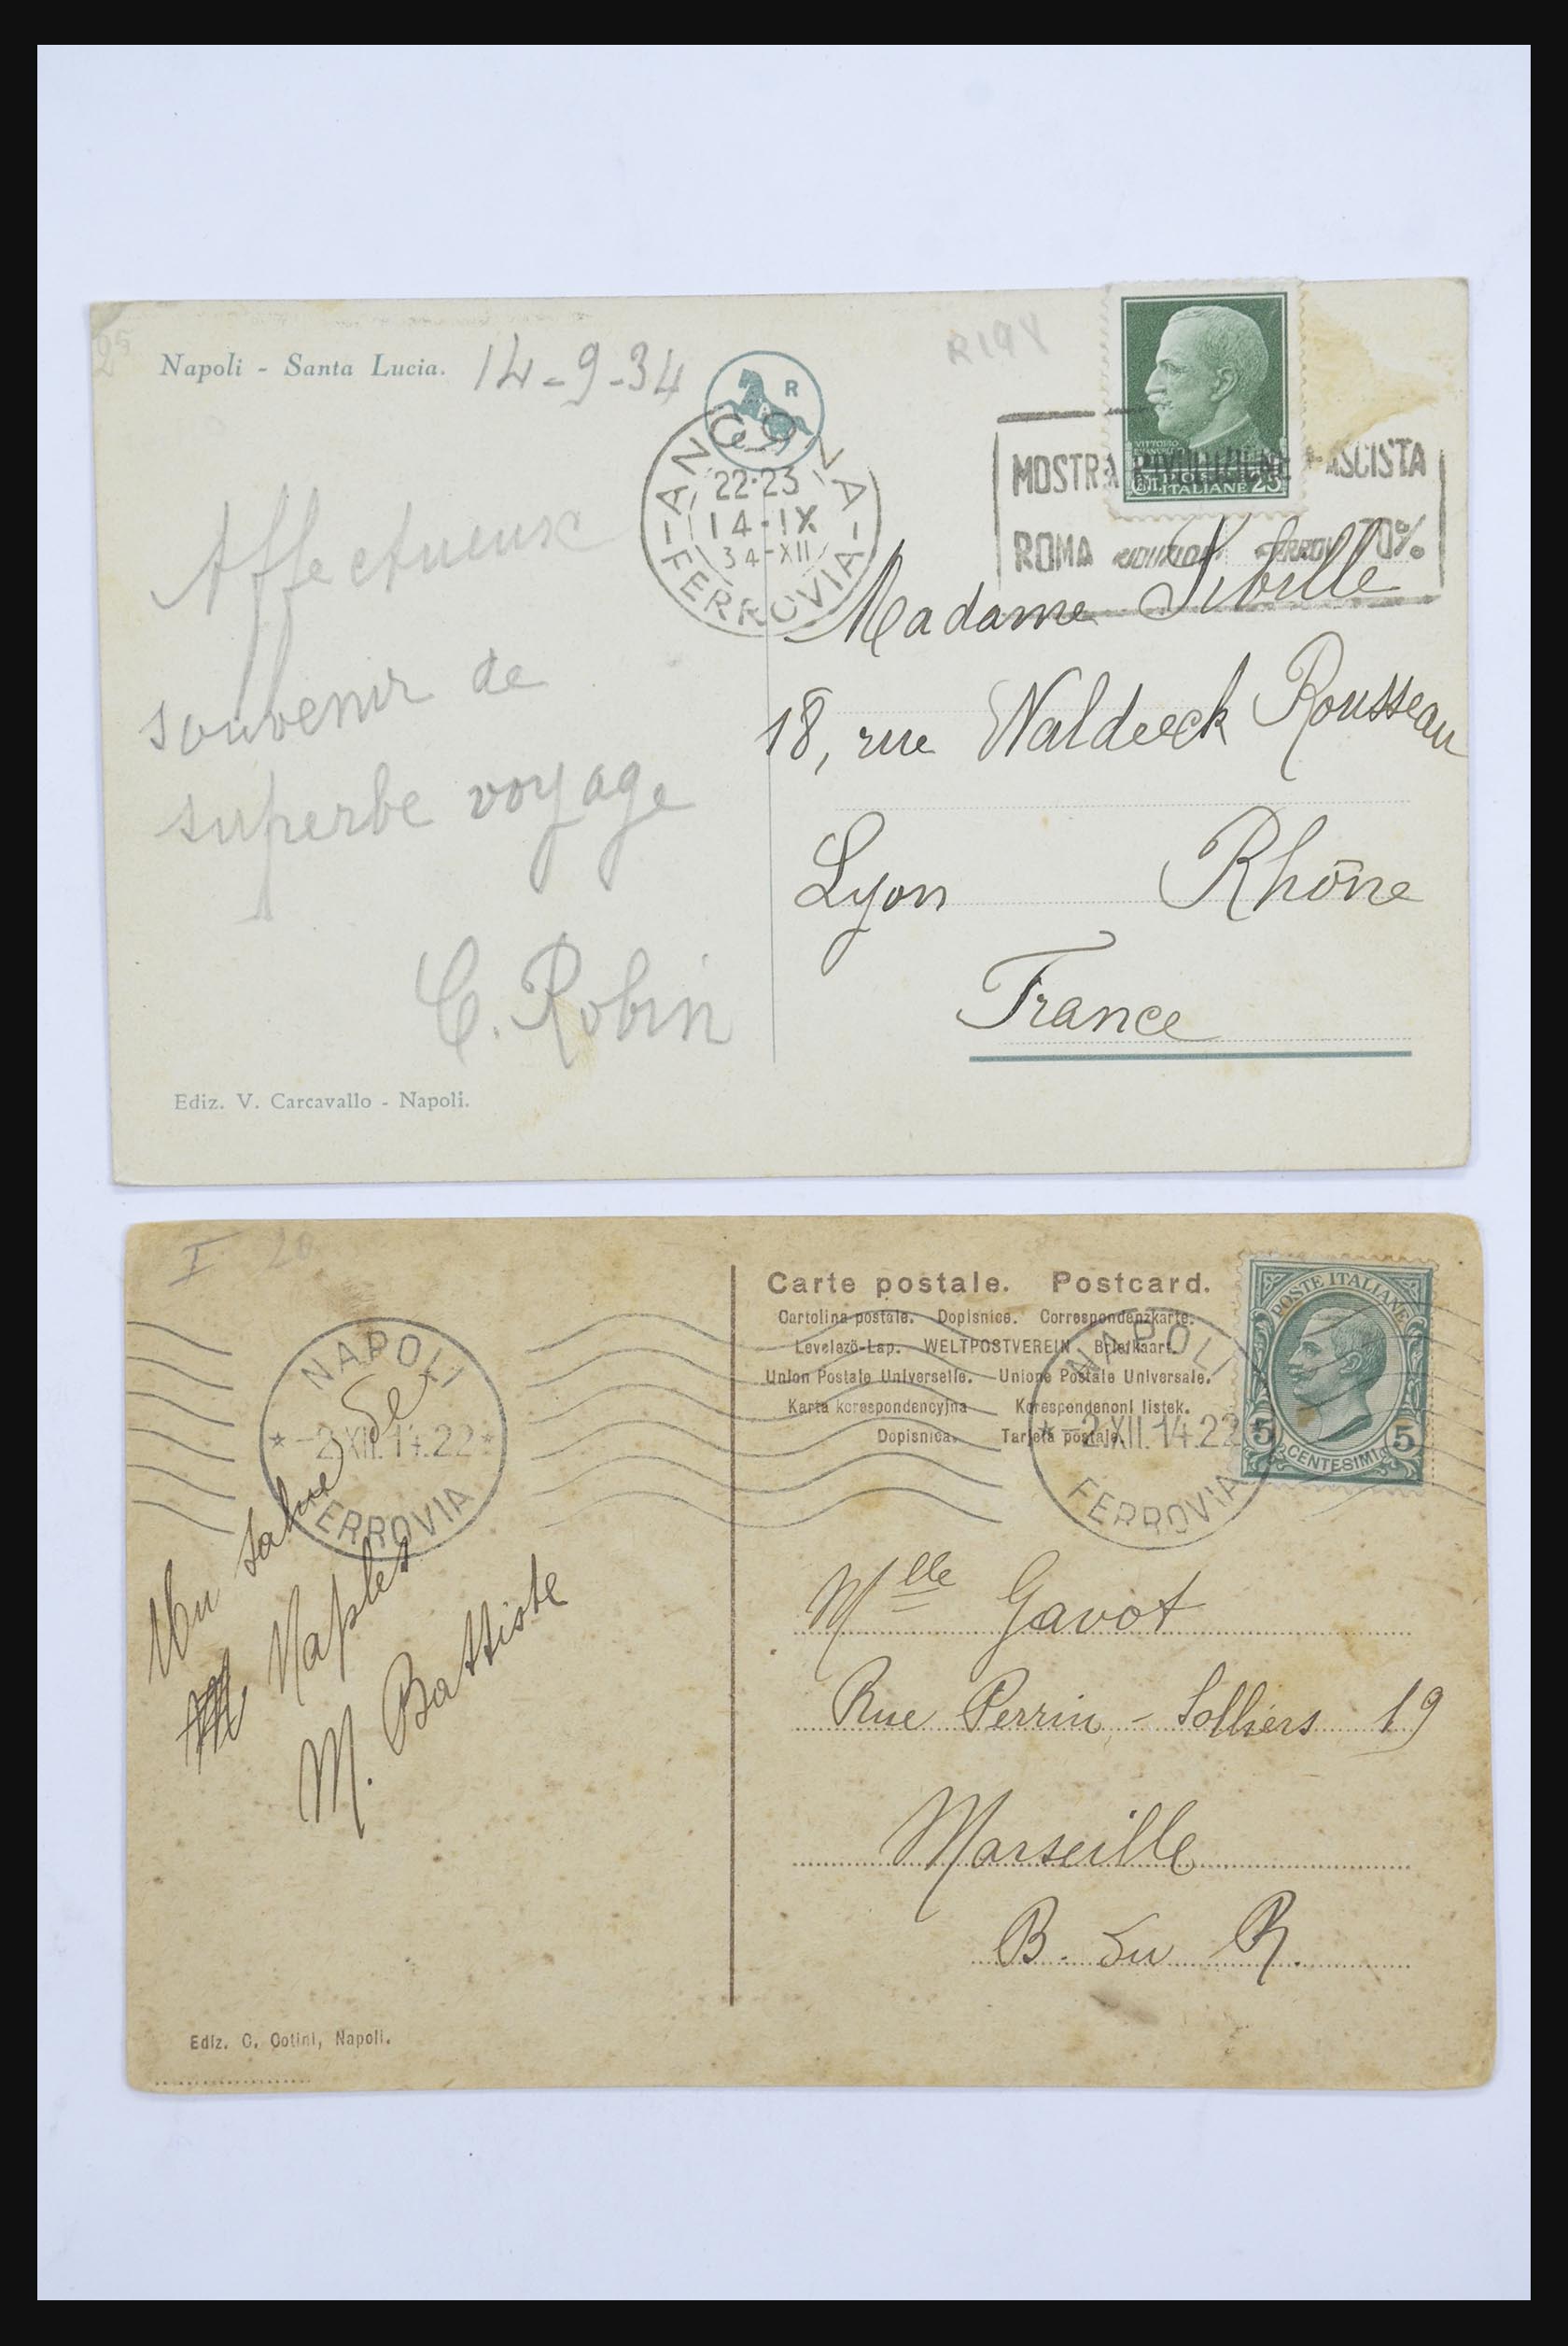 Napoli - Santa Lucia. 14-9-34
R
ANCONA
22·23
14·IX
34-XII
FERROVIA
MOSTRA RIVOLUZIONE FASCISTA
ROMA RIDUZIONI FERROV 70%
POSTE
ITALIANE
CENT. 25
Affectueux
souvenir de
superbe voyage
C. Robin
Madame Sibille
18, rue Waldeeck Rousseau
Lyon Rhône
France
Ediz. V. Carcavallo - Napoli.
I 20
Carte postale. Postcard.
Cartolina postale. Dopisnice. Correspondenzkarte.
Levelezö-Lap. WELTPOSTVEREIN Briefkaart.
Union Postale Universelle. Unione Postale Universale.
Karta korespondencyjna Korespondenoni listek.
Dopisnica. Tarjeta postale.
POSTE ITALIANE
5 CENTESIMI 5
NAPOLI
-2.XII.14.22
FERROVIA
NAPOLI
-2.XII.14.22
FERROVIA
Un salue de
Naples
M. Battiste
Mlle Gavot
Rue Perrin - Solliers 19
Marseille
B. du R.
Ediz. C. Cotini, Napoli.